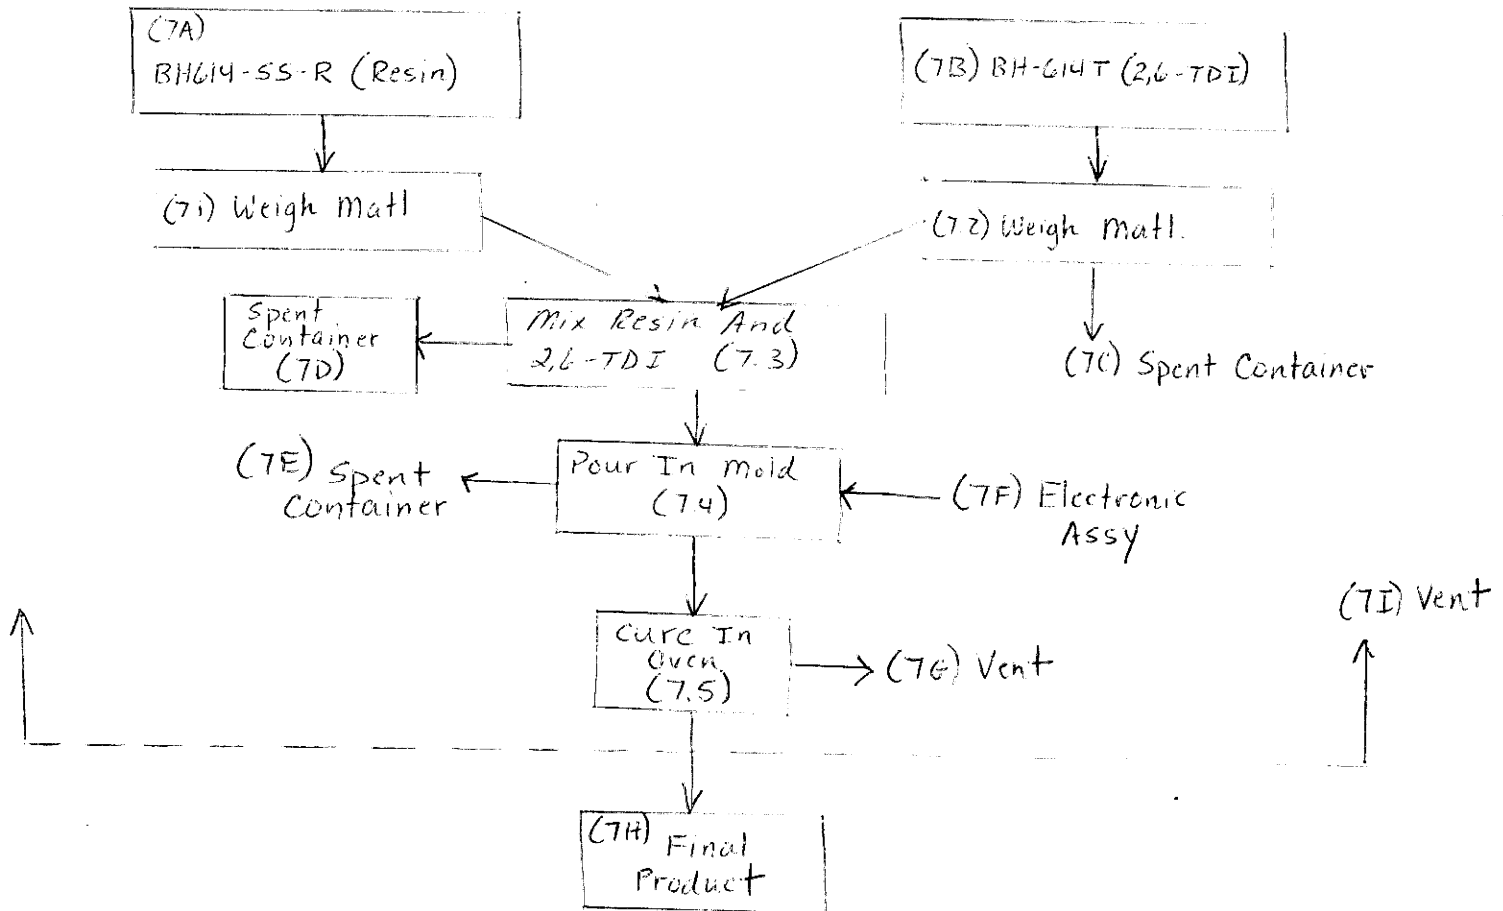 (7A)
BH614-SS-R (Resin)
(7B) BH-614T (2,6-TDI)
(71) Weigh Matl
(7.2) Weigh Matl.
Spent
Container
(7D)
Mix Resin And
2,6-TDI (7.3)
(7C) Spent Container
(7E) Spent
Container
Pour In Mold
(7.4)
(7F) Electronic
Assy
Cure In
Oven
(7.5)
(7G) Vent
(7I) Vent
(7H) Final
Product